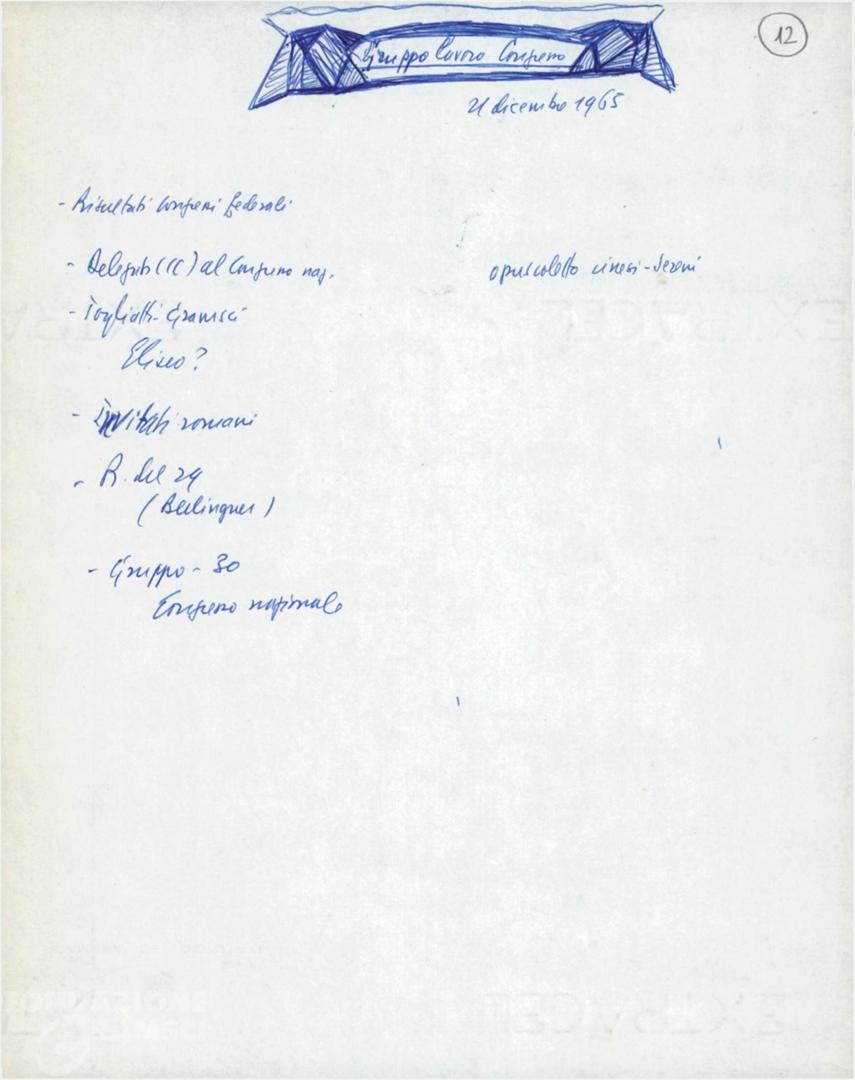 12
Gruppo lavoro Congresso
21 dicembre 1965
- Risultati congressi federali
- Delegati (CC) al Congresso naz.
opuscoletto cinesi-Sereni
- Togliatti-Gramsci
Eliseo?
- Invitati romani
- R. del 29
(Berlinguer)
- Gruppo - 30
Congresso nazionale